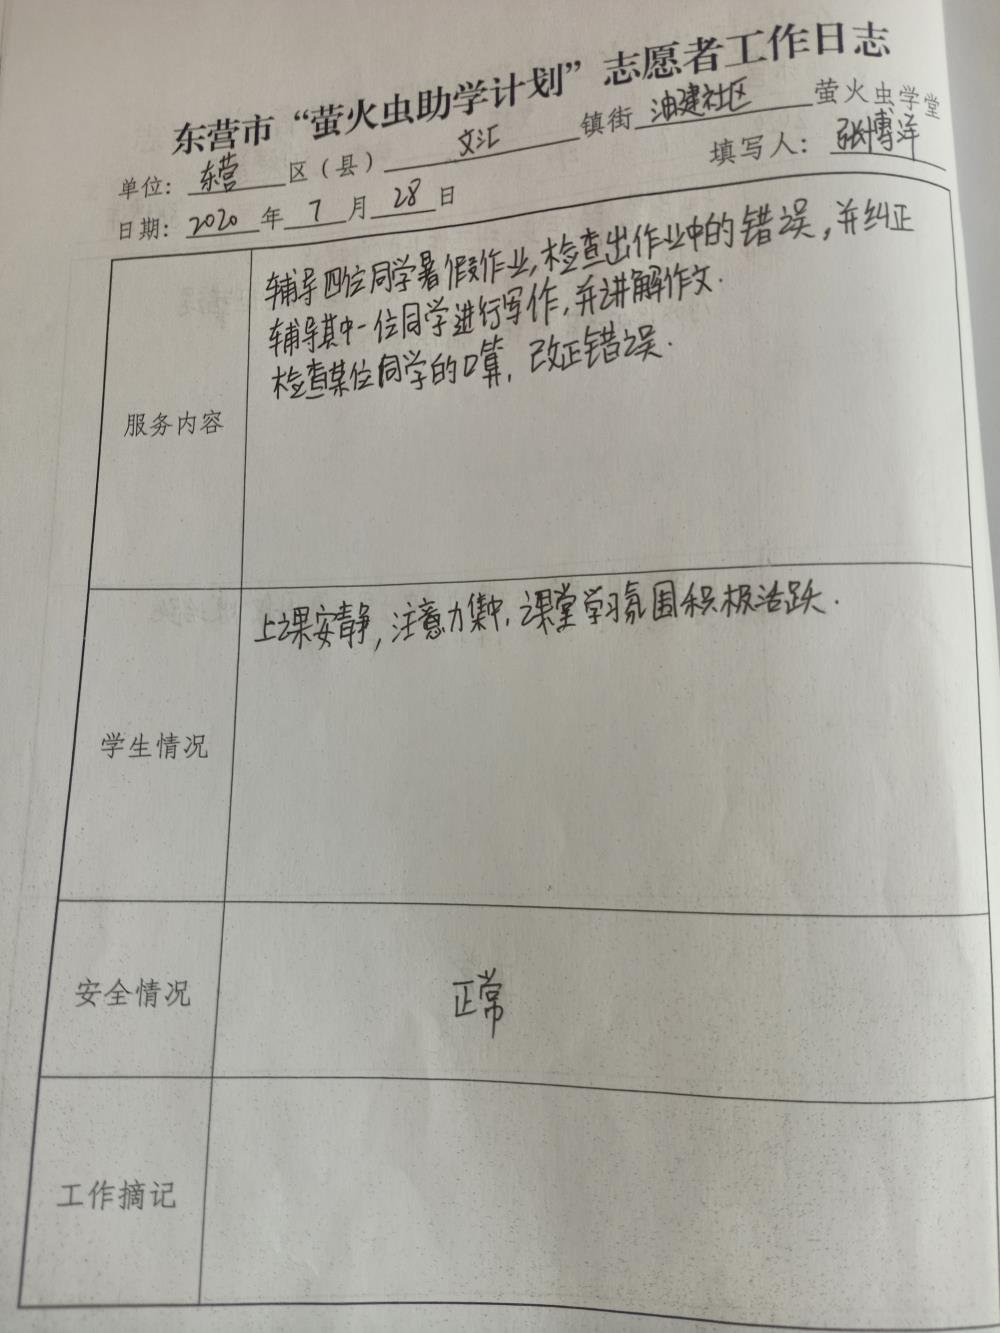 东营市“萤火虫助学计划”志愿者工作日志
单位：东营区（县）文汇镇街油建社区萤火虫学堂
日期：2020年7月28日 填写人：张博洋
服务内容
辅导四位同学暑假作业，检查出作业中的错误，并纠正
辅导其中一位同学进行写作，并讲解作文.
检查某位同学的口算，改正错误.
学生情况
上课安静，注意力集中，课堂学习氛围积极活跃.
安全情况
正常
工作摘记